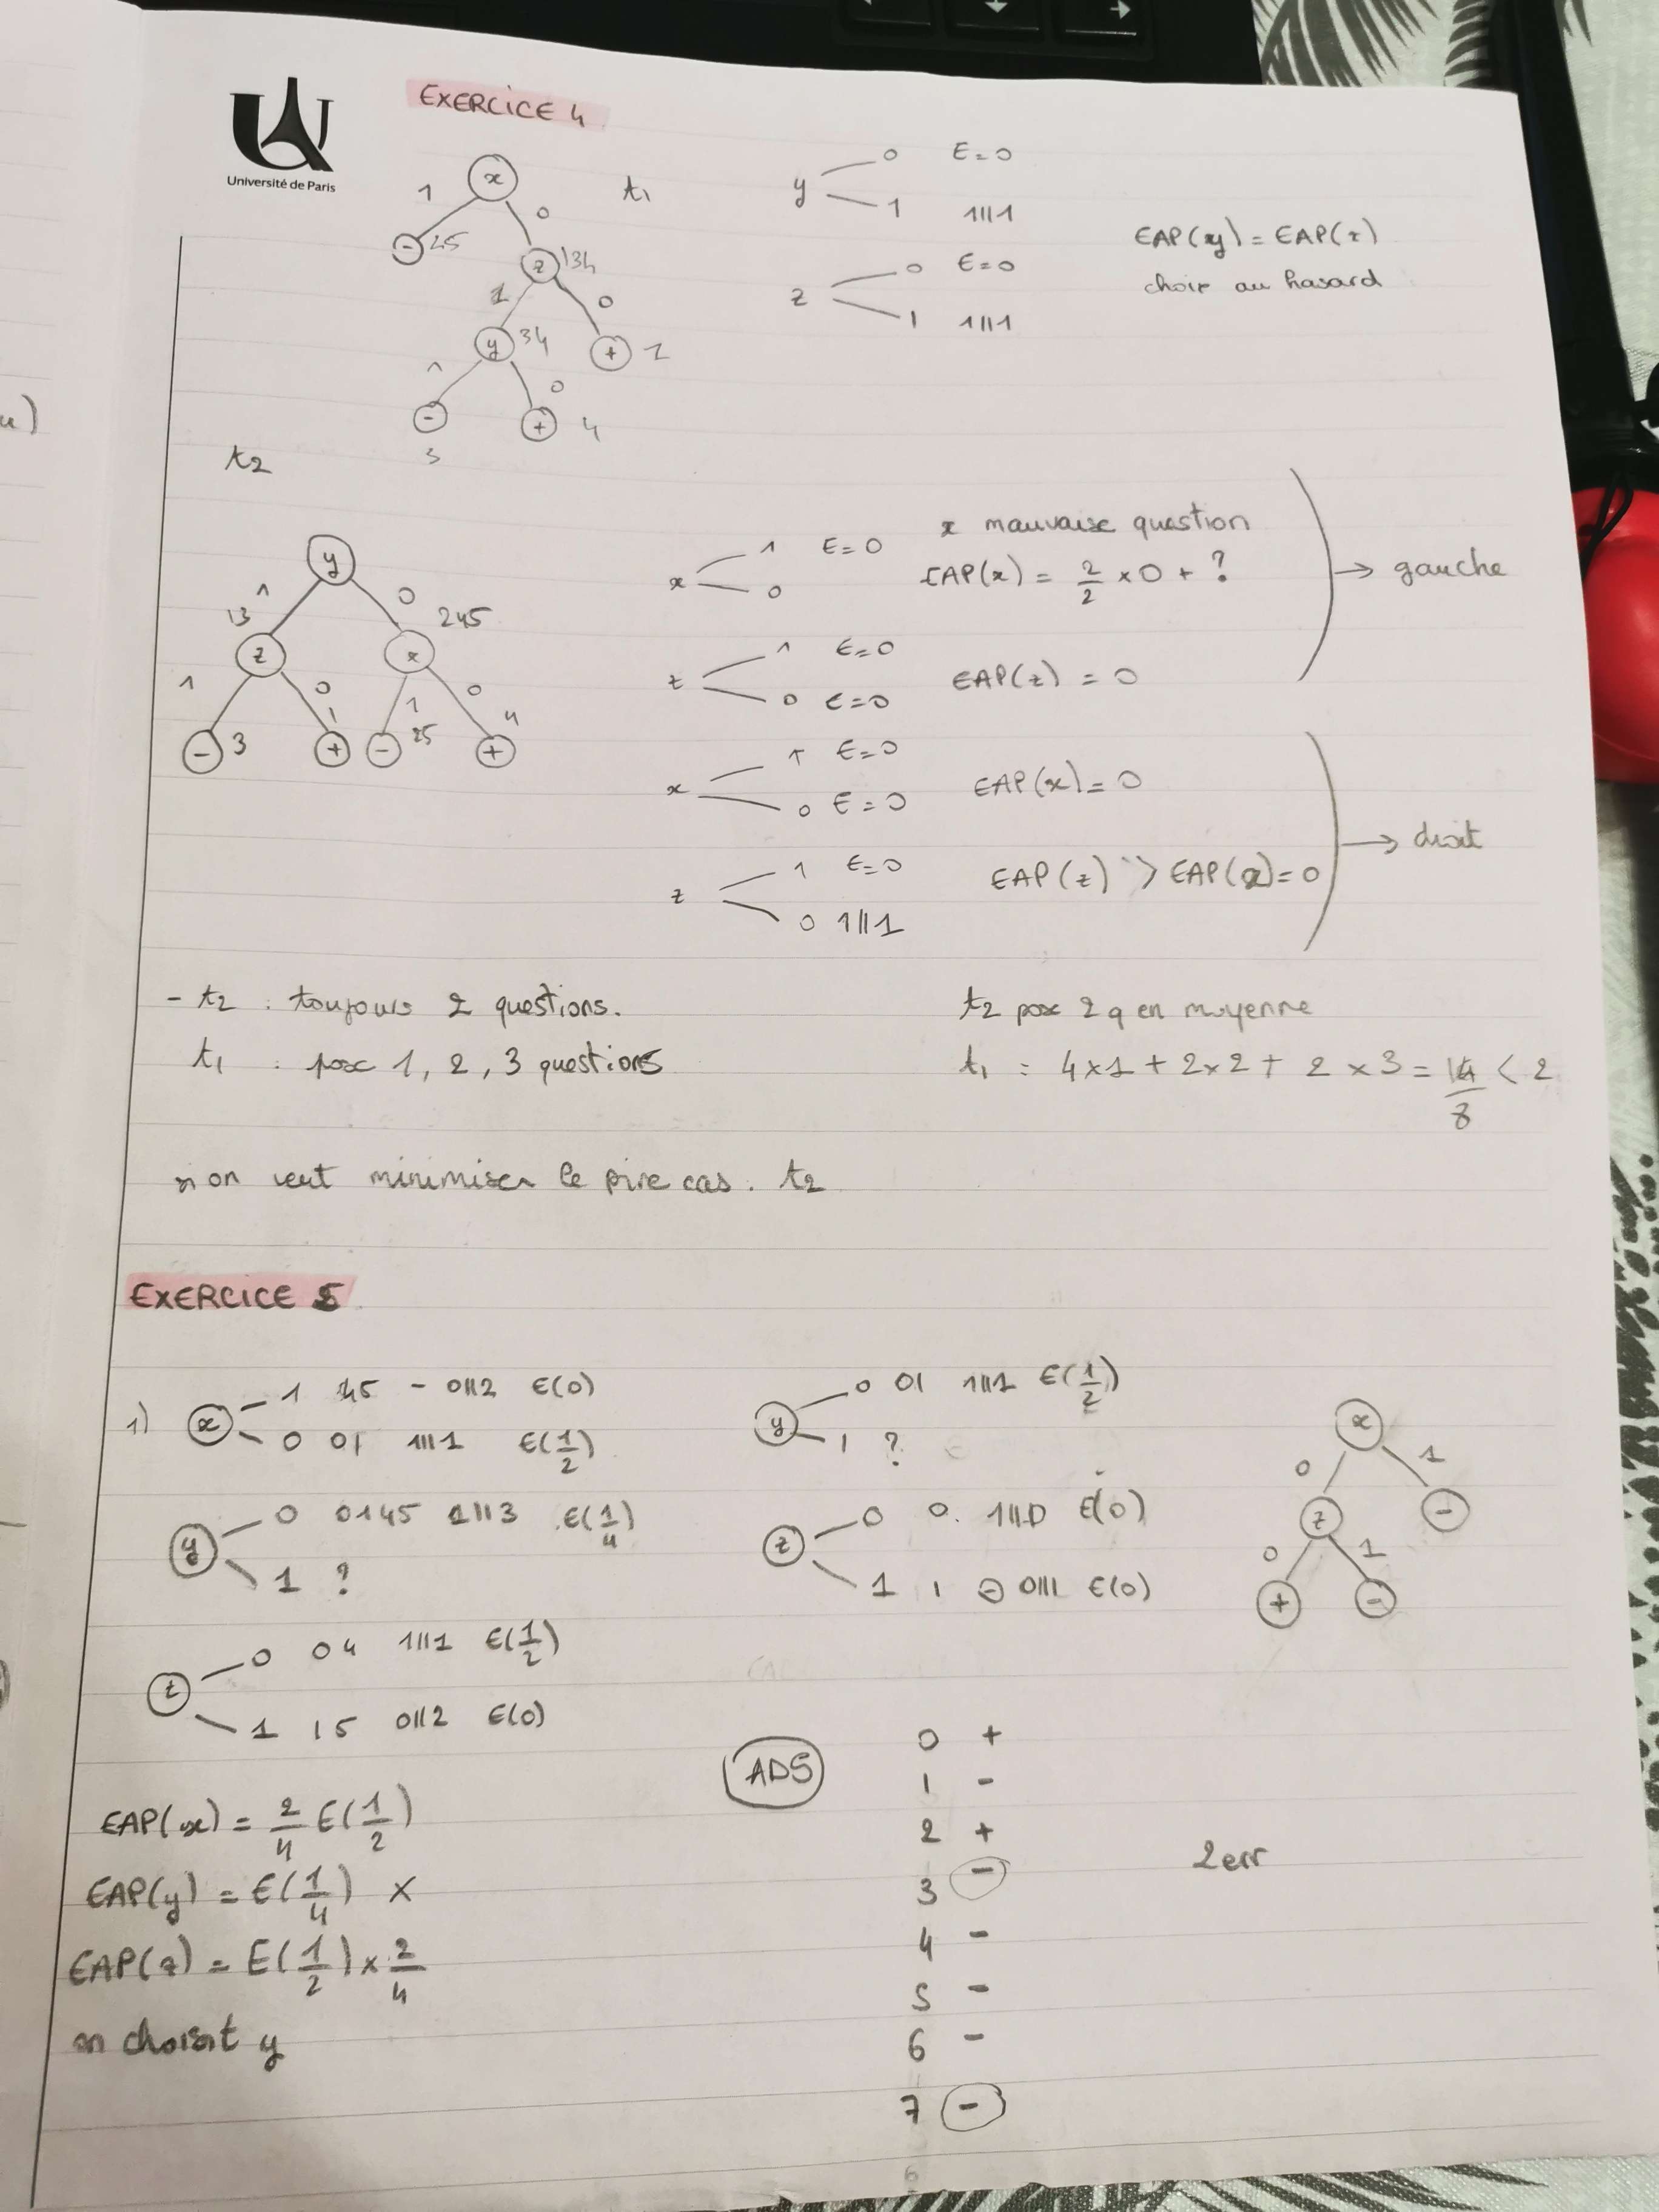 Université de Paris
EXERCICE 4
x
1
0
- 25
z 134
1
0
y 34
+ 1
1
0
-
3
+ 4
t1
y
0 E=0
1 1||1
z
0 E=0
1 1||1
EAP(y) = EAP(z)
choix au hasard
t2
y
1
0
13
245
z
x
1
0
1
0
- 3
+ 1
- 25
+ 4
x
1 E=0
0
x mauvaise question
EAP(x) = 2/2 × 0 + ?
z
1 E=0
0 E=0
EAP(z) = 0
→ gauche
x
1 E=0
0 E=0
EAP(x) = 0
z
1 E=0
0 1||1
EAP(z) > EAP(x) = 0
→ droit
- t2 : toujours 2 questions.
t2 pose 2 q en moyenne
t1 : pose 1, 2, 3 questions
t1 = 4×1 + 2×2 + 2×3 = 14/8 < 2
si on veut minimiser le pire cas. t2
EXERCICE 5
1)
x
1 45 - 0||2 E(0)
0 01 1||1 E(1/2)
y
0 0145 1||3 E(1/4)
1 ?
z
0 04 1||1 E(1/2)
1 15 0||2 E(0)
y
0 01 1||1 E(1/2)
1 ?
z
0 0. 1||0 E(0)
1 1 - 0||1 E(0)
x
0
1
z
-
0
1
+
-
EAP(x) = 2/4 E(1/2)
EAP(y) = E(1/4) ×
EAP(z) = E(1/2) × 2/4
on choisit y
AD5
0 +
1 -
2 +
3 -
4 -
5 -
6 -
7 -
2err
6